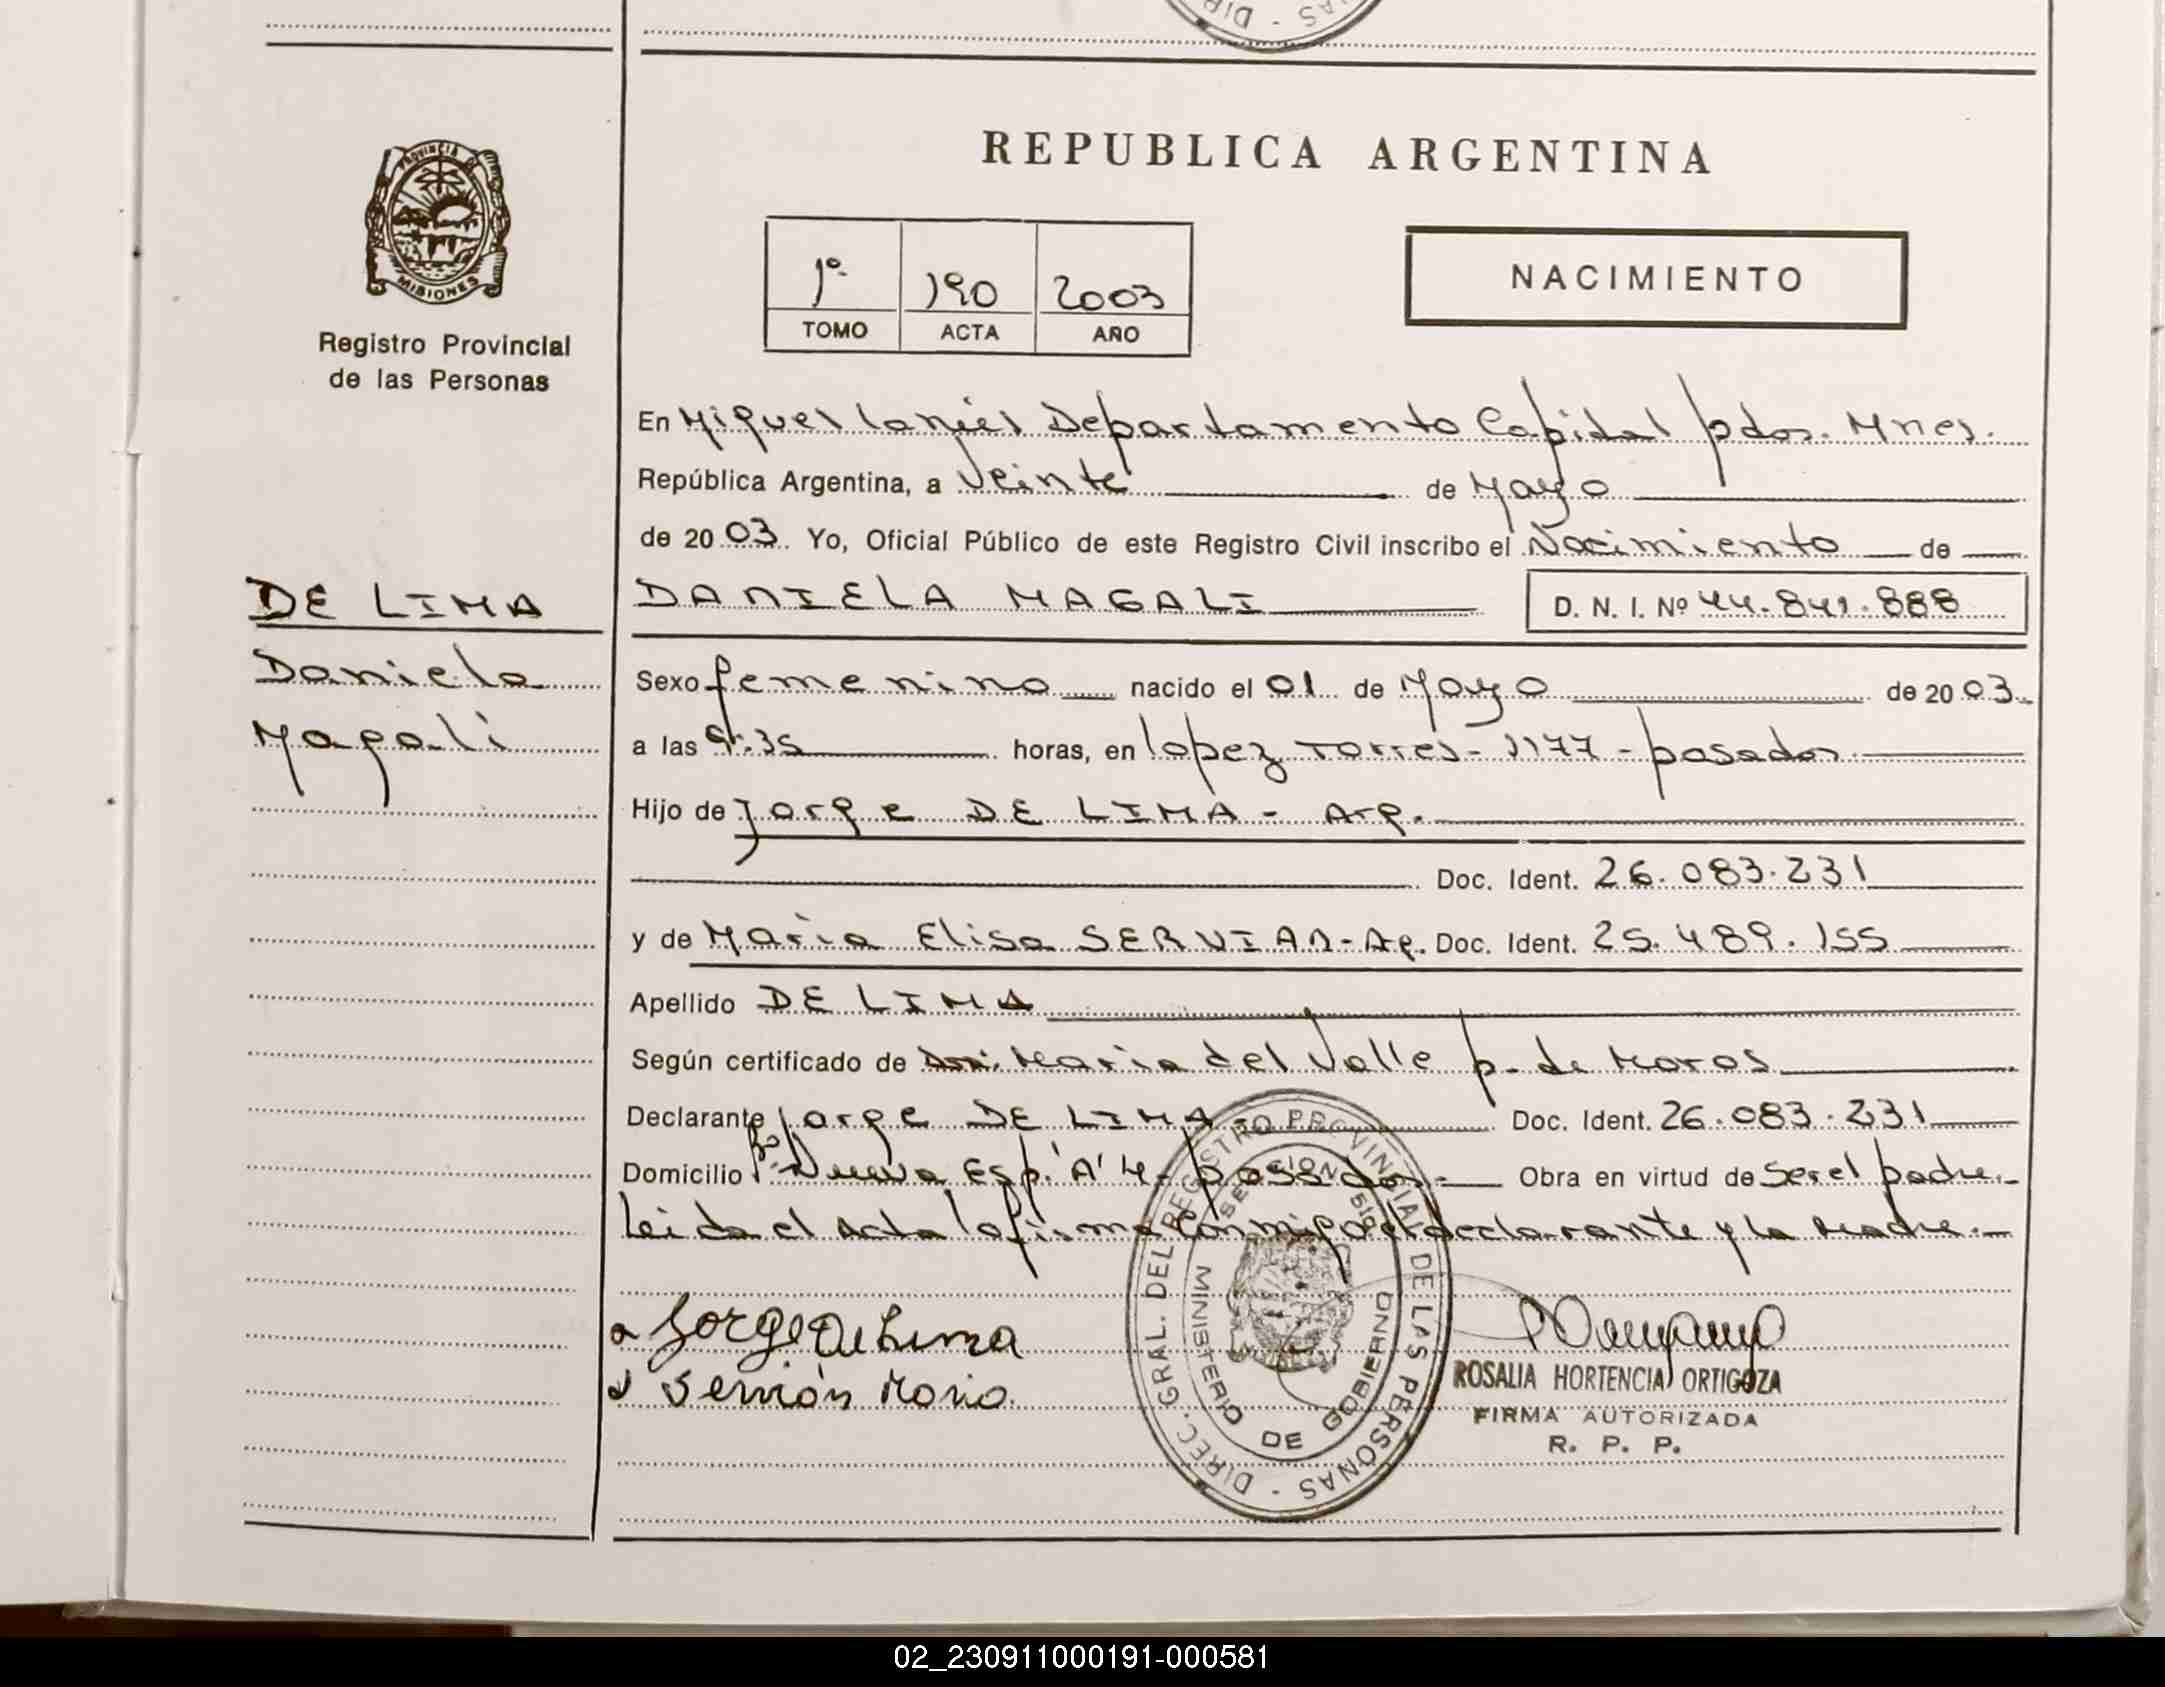 DIR - NAS
PROVINCIA D
MISIONES
Registro Provincial
de las Personas
DE LIMA
Daniela
Magali
REPUBLICA ARGENTINA
1º 190 2003
TOMO ACTA AÑO
NACIMIENTO
En Miguel Lanús Departamento Capital pdas. Mnes.
República Argentina, a Veinte de Mayo
de 2003. Yo, Oficial Público de este Registro Civil inscribo el Nacimiento de
DANIELA MAGALI D. N. I. Nº 44.841.888
Sexo femenino nacido el 01 de Mayo de 2003.
a las 9:35 horas, en Lopez Torres - 1177 - posadas
Hijo de Jorge DE LIMA - Arg.
Doc. Ident. 26.083.231
y de Maria Elisa SERVIAN - Ag. Doc. Ident. 25.489.155
Apellido DE LIMA
Según certificado de Maria del Valle p. de Moros
Declarante Jorge DE LIMA Doc. Ident. 26.083.231
Domicilio Bº Nueva Esp. 'A' 4 - posadas - Obra en virtud de ser el padre.-
Leida el Acta la firma conmigo el declarante y la Madre.-
Jorge De Lima
Servián Maria
DIREC. GRAL. DEL REGISTRO PROVINCIAL DE LAS PERSONAS -
MINISTERIO DE GOBIERNO
ROSALIA HORTENCIA ORTIGOZA
FIRMA AUTORIZADA
R. P. P.
02_230911000191-000581